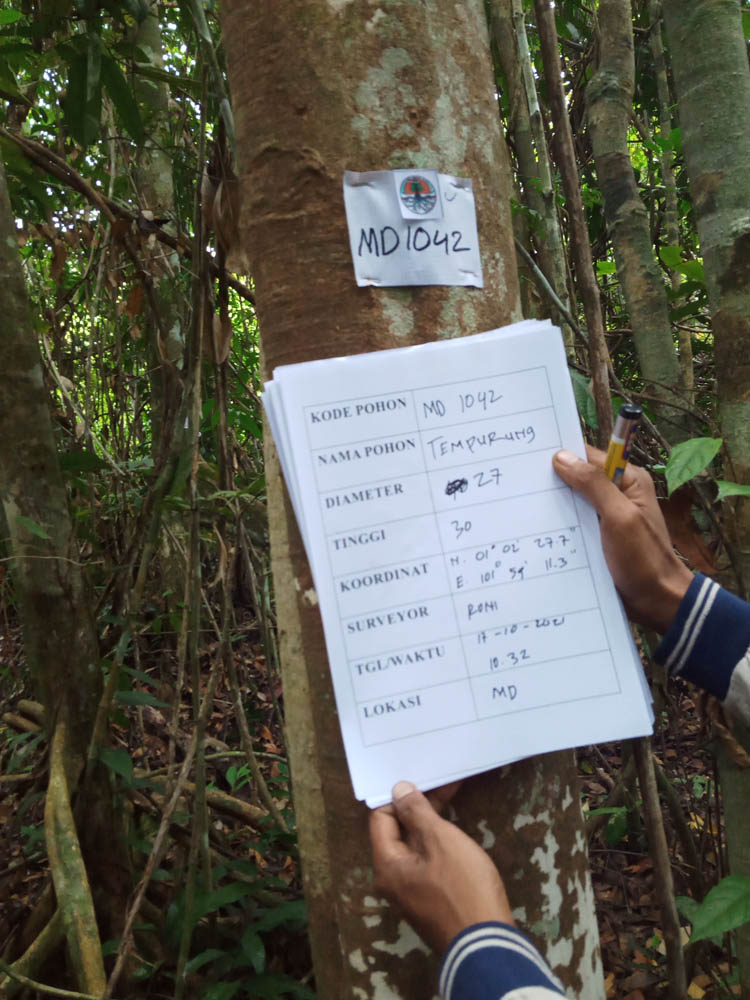 MD 1042
KODE POHON MD 1042
NAMA POHON TEMPURUNG
DIAMETER 27
TINGGI 30
KOORDINAT N. 01° 02' 27.7"
E. 101° 59' 11.3"
SURVEYOR RONI
TGL/WAKTU 17-10-2021
10.32
LOKASI MD